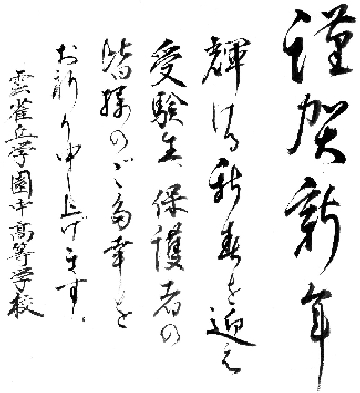 謹賀新年
輝ける新春を迎え
受験生、保護者の
皆様のご多幸を
お祈り申し上げます。
雲雀丘学園中高等学校